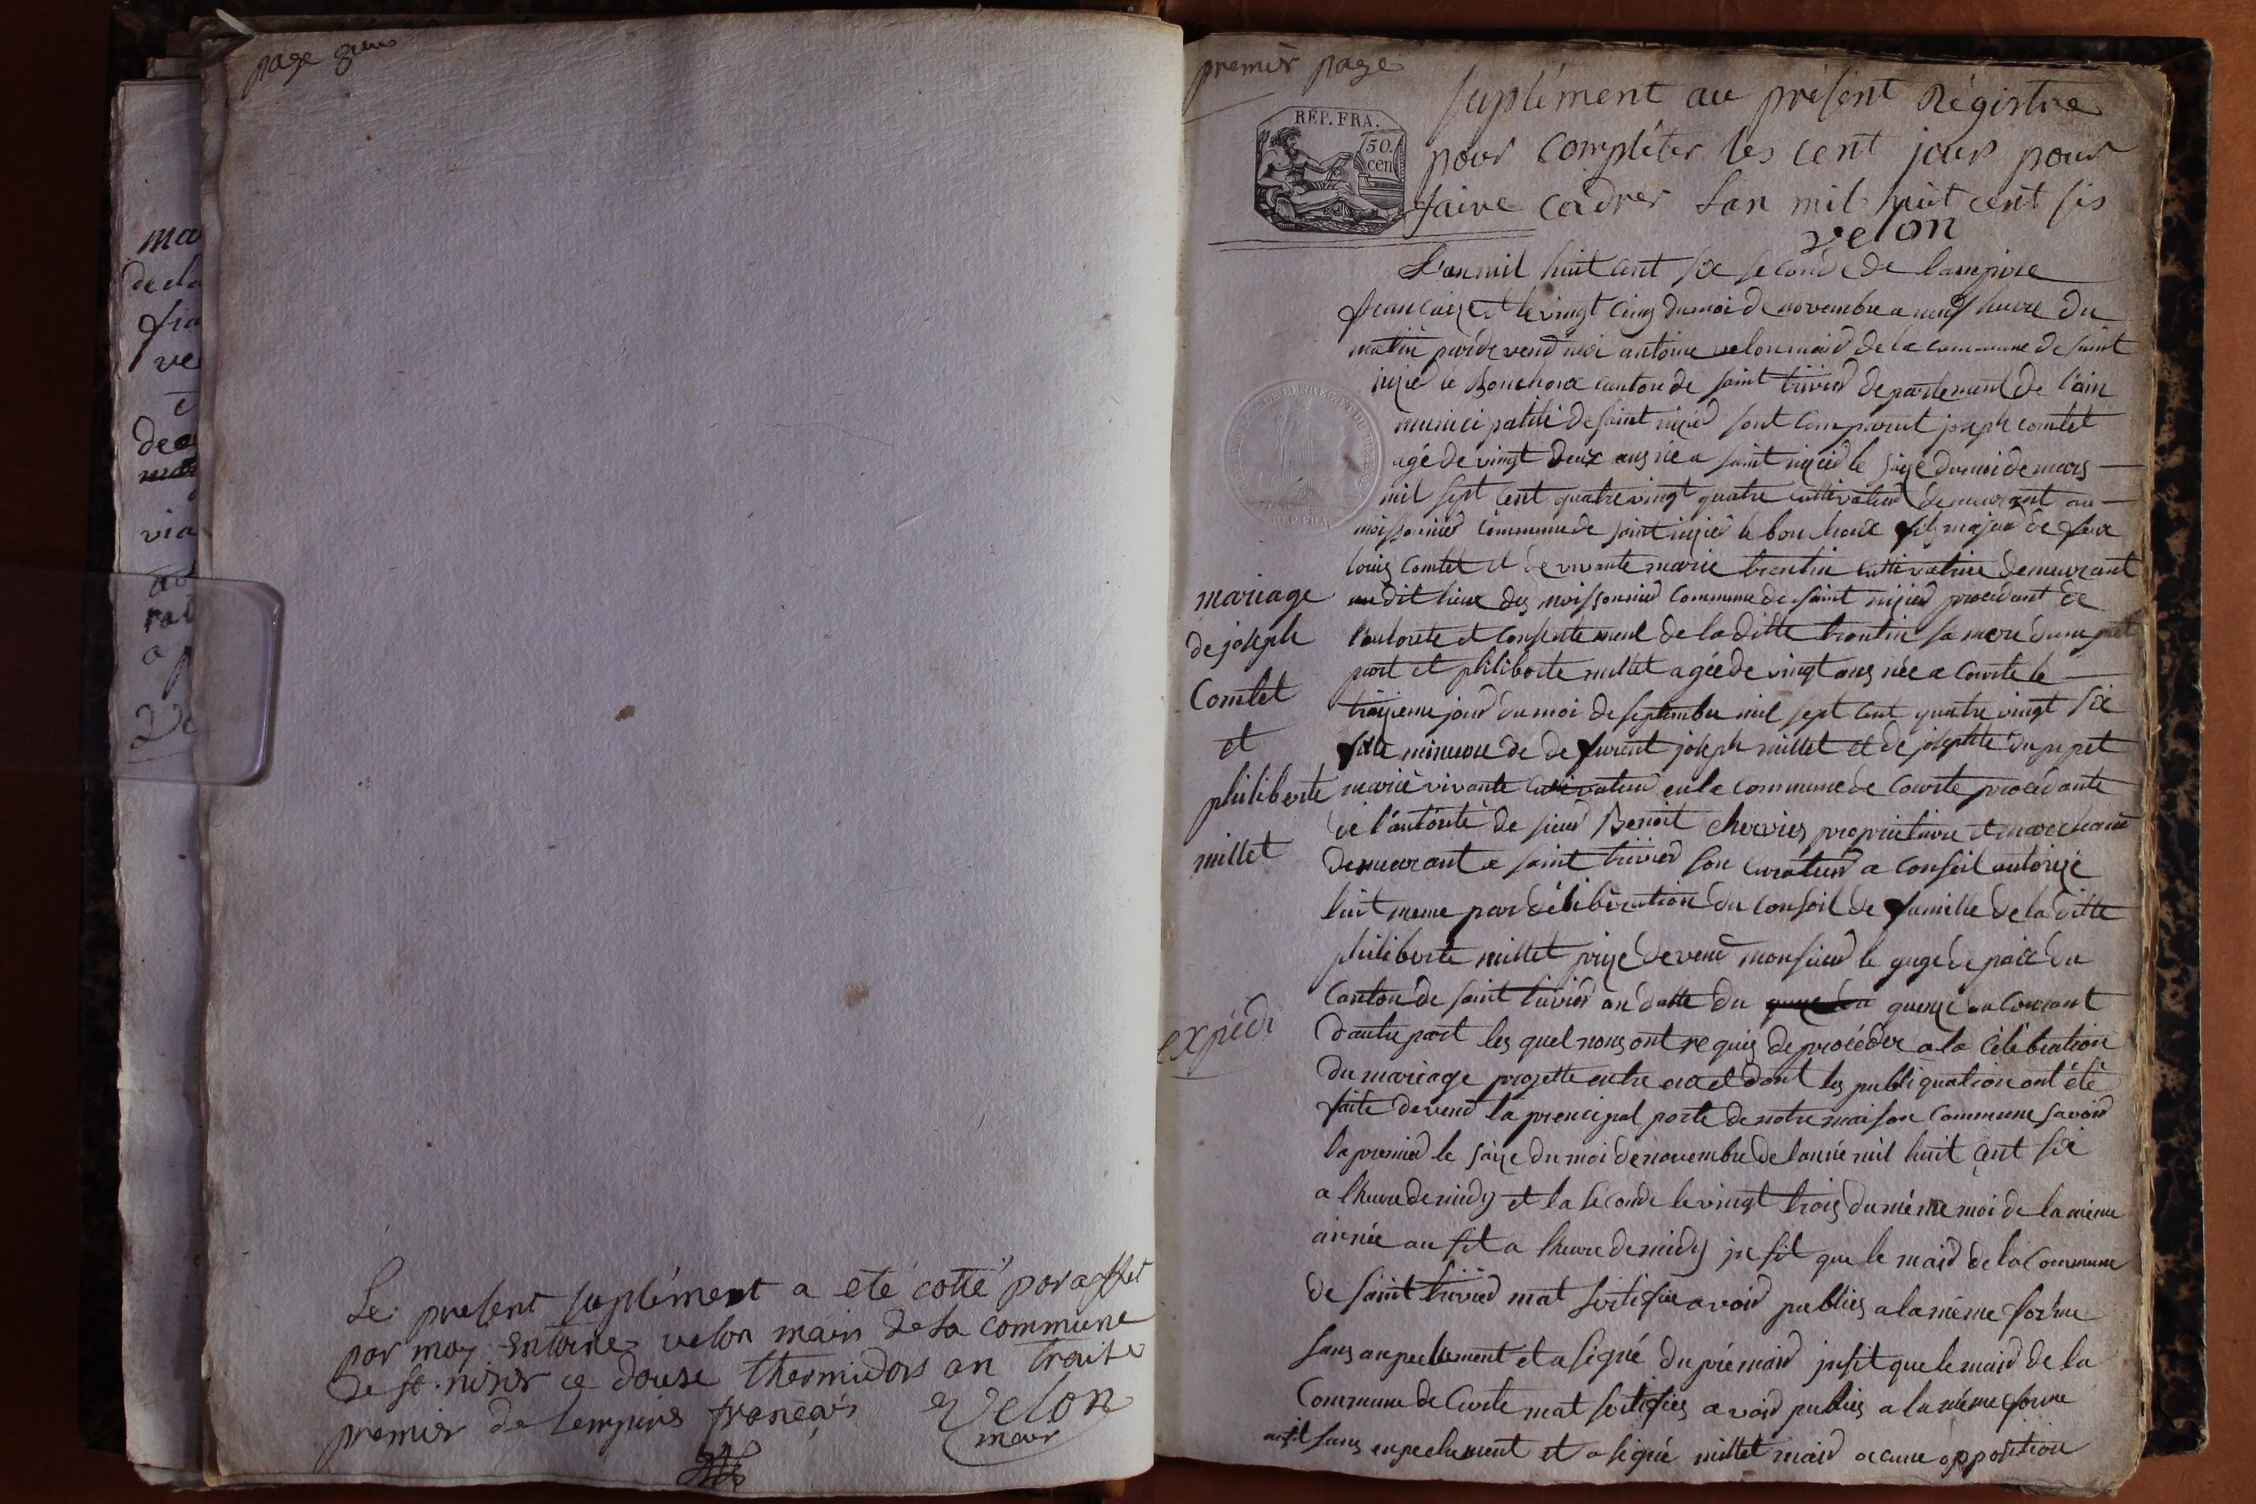 page
Le present suplément a eté cotté paraffet
par moy antoine velon maire de la commune
de st. nisier ce douse thermidors an traite
premier de lempire français
Velon
mair
premièr page
RÉP. FRA.
50.
cen
suplément au présent Régistre
pour compléter les cent jour pour
faire cadrer lan mil huit cent sis
velon
L'an mil huit cent six seconde de l'ampire
francaize et le vingt cinq du moi de novembre a neuf heure du
matin pardevend moi antoine velon maid de la commune de saint
nizied le Bouchoux canton de saint trivied departement de l'ain
municipalité de saint nizied sont comparent joseph comtet
agé de vingt deux ans née a saint nizied le saize du moi de mars
mil sept cent quatre vingt quatre cultivateur demeurant au
moissonnied commune de saint nizied le bouchoux fils majeur de feux
louis comtet et de vivante marie trontin cultivatrice demeurant
audit lieux des moissonnied commune de saint nizied procedant de
l'autorete et consentement de la ditte trontin sa mere dune
part et philiberte millet agée de vingt ans née a Courte le
troizieme jour du moi de septembre mil sept cent quatre vingt six
fille mineure de defunent joseph millet et de josephte
marié vivante cultivateur en la commune de Courte procedante
de l'autorité de sieur Benoit chervier proprietaire et marchand
demeurant a saint trivied son curateur a conseil autorizé
luit meme par délibération du conseil de famille de la ditte
philiberte millet prize devend monsieur le guge de paix du
Canton de saint trivied an datte du quenze du Courant
dautre part les quel nous ont requis de procéder a la célébration
du mariage projette entre eux et dont les publiquation ont été
faite devend la prencipal porte de notre maison Commune savoir
la premied le saize du moi de novembre de lanné mil huit cent six
a lheure de midy et la seconde le vingt trois du même moi de la même
année ausit a lheure de midy insit que le maid de la Commune
de saint trivied mat sertifiée avoid publies a la même forme
sans anpechement et a signé dupré maid insit que le maid de la
Commune de Curte mat sertifiés avoid publies a la même forme
ausit sans enpechement et a signé millet maid ocune opposition
mariage
de joseph
Comtet
et
philiberte
millet
expédi